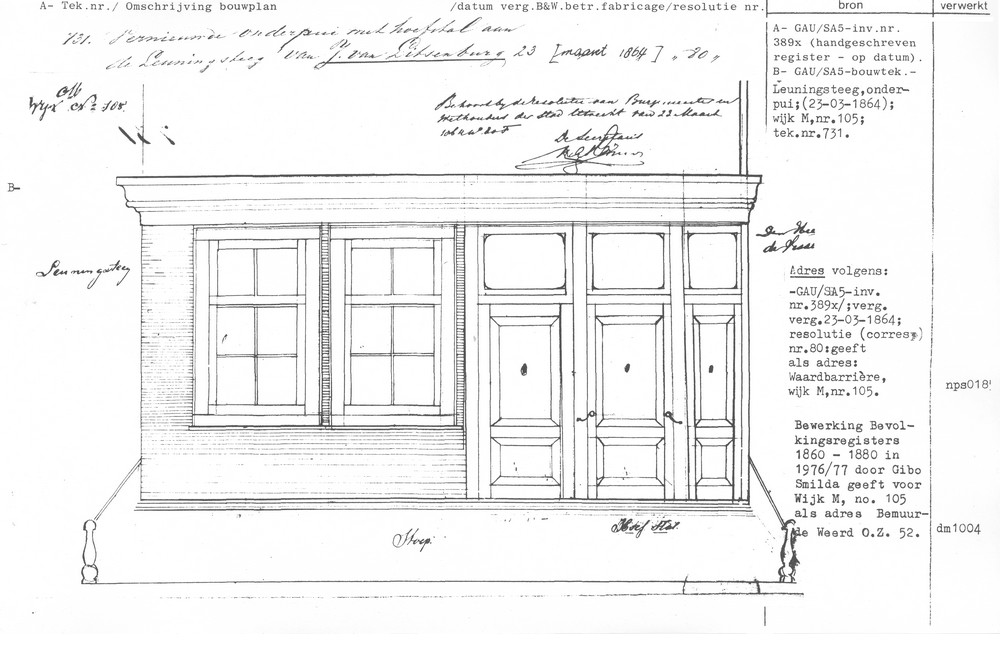 A- Tek.nr./ Omschrijving bouwplan /datum verg.B&W.betr.fabricage/resolutie nr. bron verwerkt
731. Vernieuwde onderpui met hoefstal aan
de Leuningsteeg van J. van Litsenburg, 23 [maart 1864] „ 80 „
Wijk M No 105.
Behoord bij de resolutie van Burgemeester en
Wethouders der stad Utrecht van 23 Maart
1864 No 80 F
De Secretaris
B-
Leuningsteeg
Stoep.
Hoef Stal
A- GAU/SA5-inv.nr.
389x (handgeschreven
register - op datum).
B- GAU/SA5-bouwtek.-
Leuningsteeg,onder-
pui;(23-03-1864);
wijk M,nr.105;
tek.nr.731.
Adres volgens:
-GAU/SA5-inv.
nr.389x/;verg.
verg.23-03-1864;
resolutie (corresp)
nr.80:geeft
als adres:
Waardbarrière,
wijk M,nr.105.
nps018
Bewerking Bevol-
kingsregisters
1860 - 1880 in
1976/77 door Gibo
Smilda geeft voor
Wijk M, no. 105
als adres Bemuur-
de Weerd O.Z. 52.
dm1004